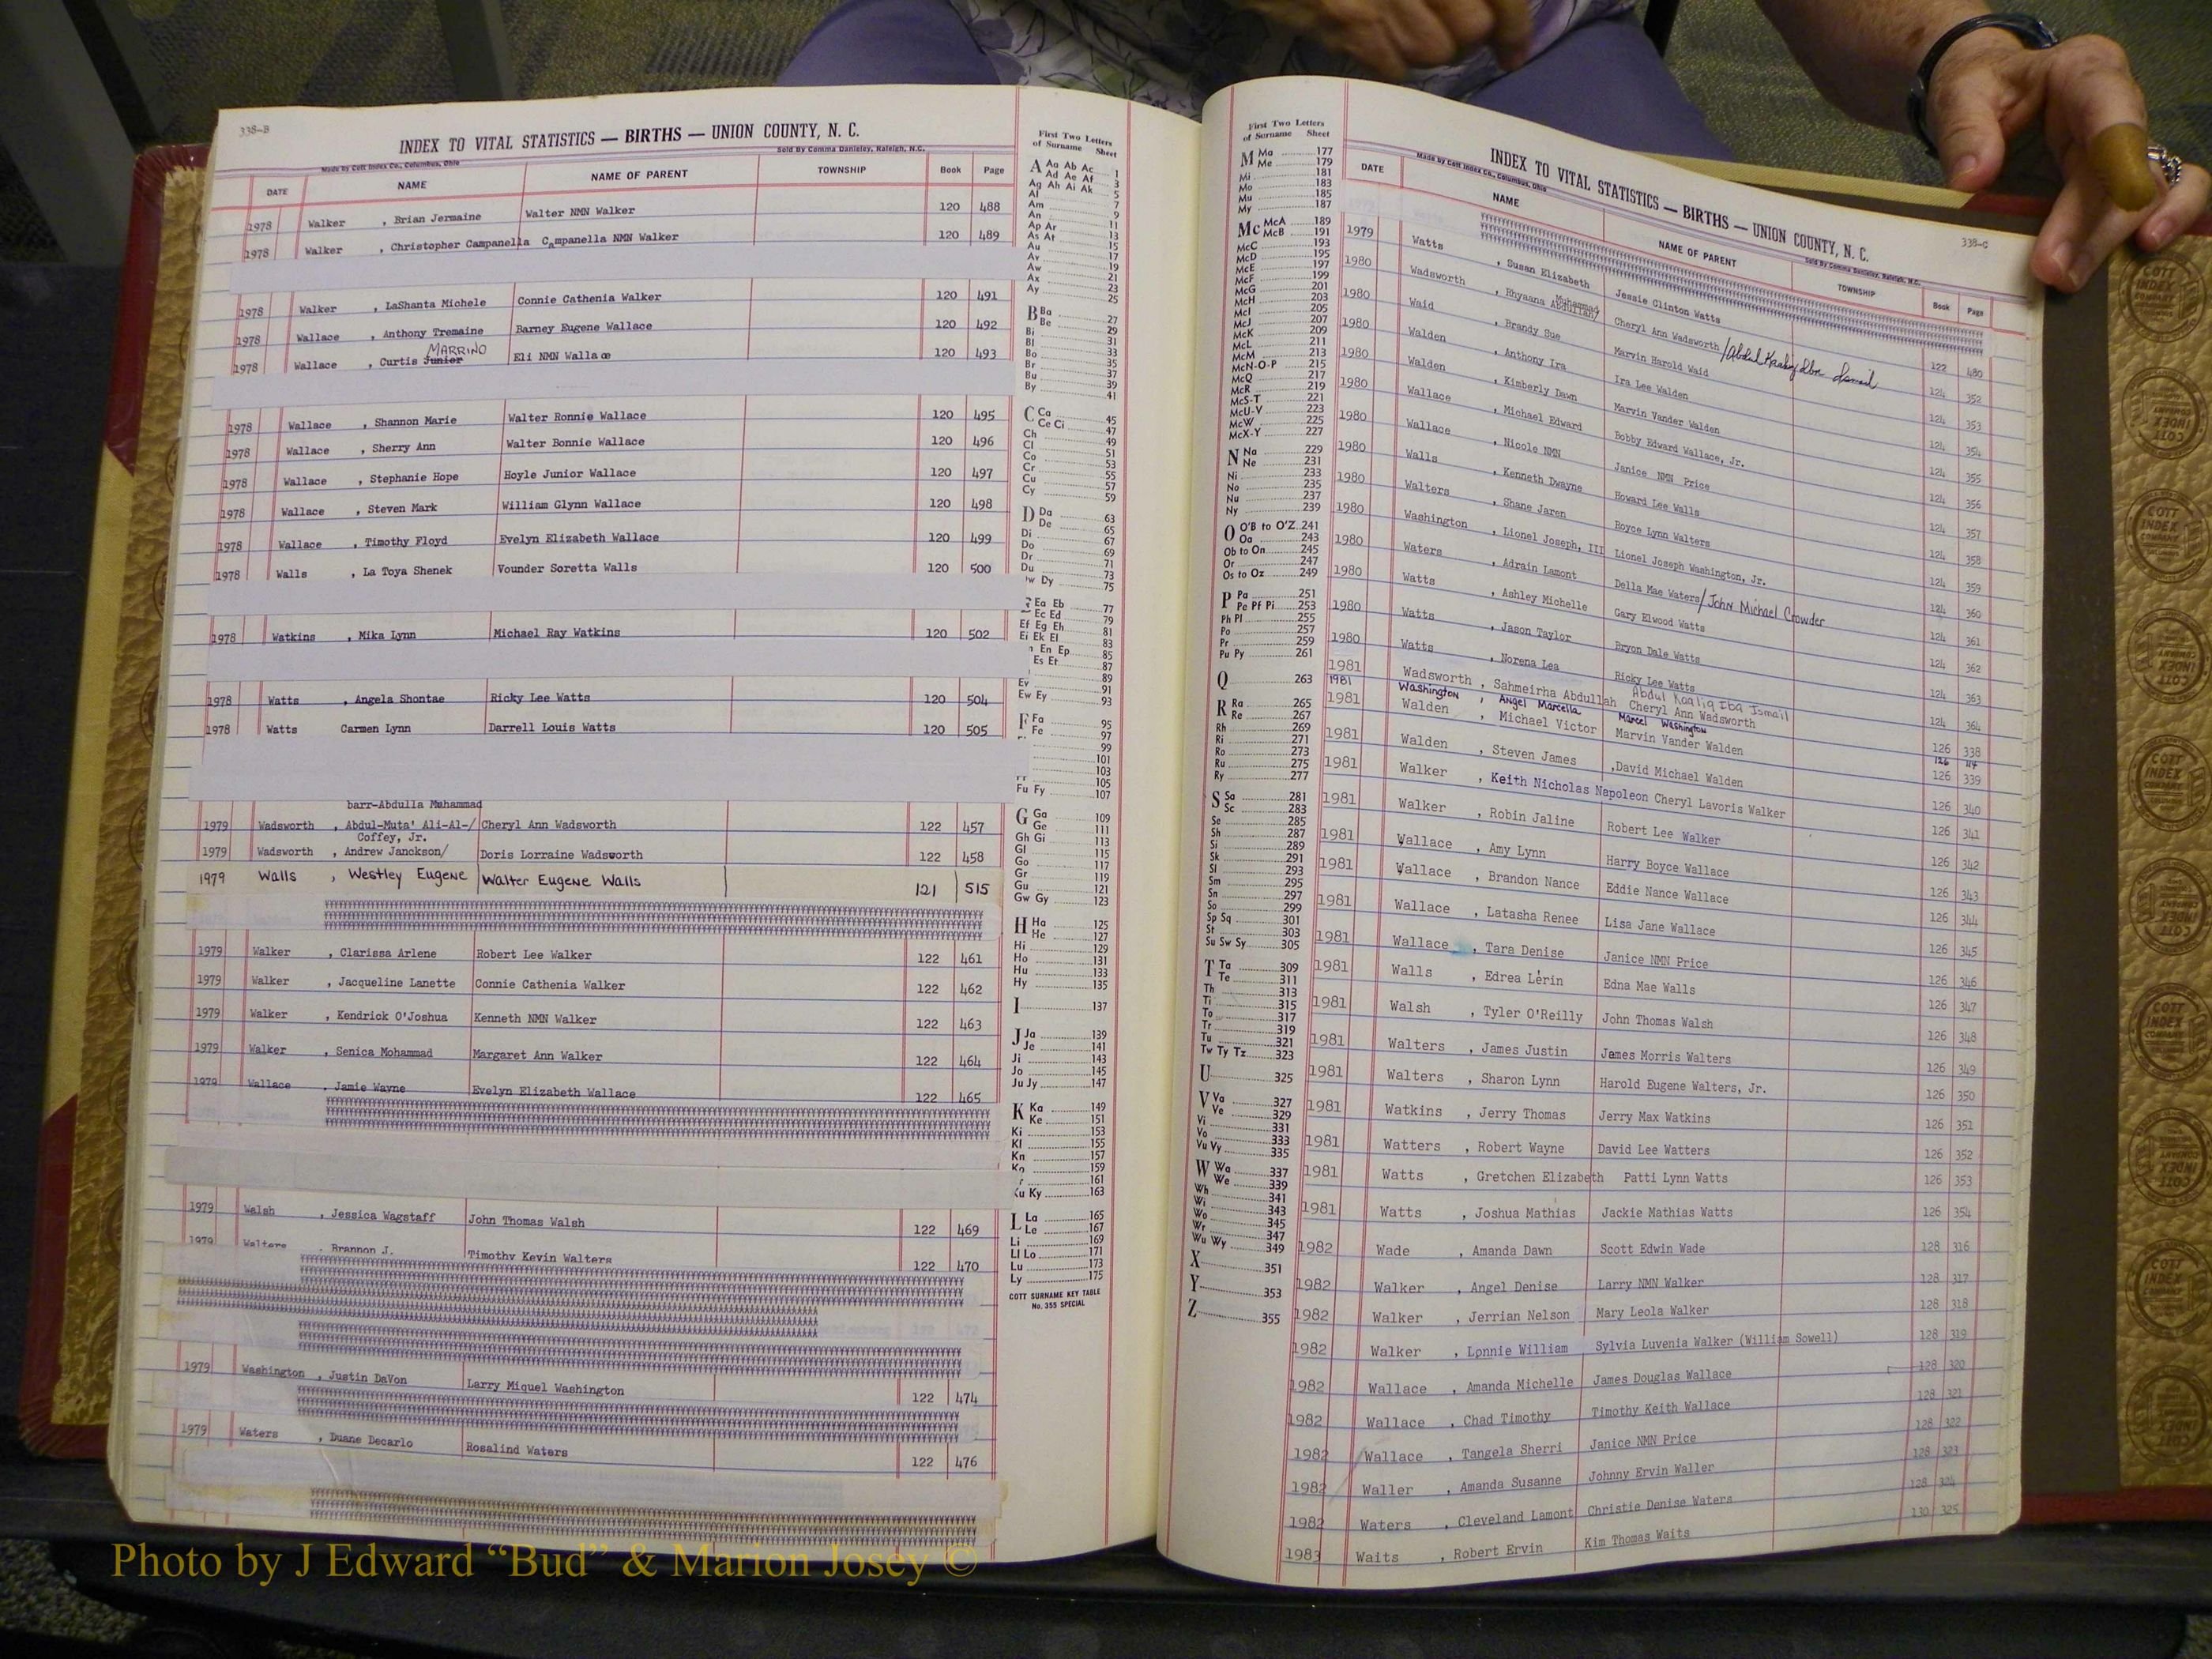 338-B
INDEX TO VITAL STATISTICS — BIRTHS — UNION COUNTY, N. C.
Made by Cott Index Co., Columbus, Ohio
Sold By Comma Danieley, Raleigh, N.C.
DATE NAME NAME OF PARENT TOWNSHIP Book Page
1978 Walker , Brian Jermaine Walter NMN Walker 120 488
1978 Walker , Christopher Campanella Campanella NMN Walker 120 489
1978 Walker , LaShanta Michele Connie Cathenia Walker 120 491
1978 Wallace , Anthony Tremaine Barney Eugene Wallace 120 492
MARRINO
1978 Wallace , Curtis Junior Eli NMN Wallace 120 493
1978 Wallace , Shannon Marie Walter Ronnie Wallace 120 495
1978 Wallace , Sherry Ann Walter Bonnie Wallace 120 496
1978 Wallace , Stephanie Hope Hoyle Junior Wallace 120 497
1978 Wallace , Steven Mark William Glynn Wallace 120 498
1978 Wallace , Timothy Floyd Evelyn Elizabeth Wallace 120 499
1978 Walls , La Toya Shenek Vounder Soretta Walls 120 500
1978 Watkins , Mika Lynn Michael Ray Watkins 120 502
1978 Watts , Angela Shontae Ricky Lee Watts 120 504
1978 Watts Carmen Lynn Darrell Louis Watts 120 505
barr-Abdulla Mahammad
1979 Wadsworth , Abdul-Muta' Ali-Al-/ Cheryl Ann Wadsworth 122 457
Coffey, Jr.
1979 Wadsworth , Andrew Janckson/ Doris Lorraine Wadsworth 122 458
1979 Walls , Westley Eugene Walter Eugene Walls 121 515
1979 Walker , Clarissa Arlene Robert Lee Walker 122 461
1979 Walker , Jacqueline Lanette Connie Cathenia Walker 122 462
1979 Walker , Kendrick O'Joshua Kenneth NMN Walker 122 463
1979 Walker , Senica Mohammad Margaret Ann Walker 122 464
1979 Wallace , Jamie Wayne Evelyn Elizabeth Wallace 122 465
1979 Walsh , Jessica Wagstaff John Thomas Walsh 122 469
1979 Walters , Brannon J. Timothy Kevin Walters 122 470
1979 Washington , Justin DaVon Larry Miquel Washington 122 474
1979 Waters , Duane Decarlo Rosalind Waters 122 476
First Two Letters
of Surname Sheet
A Aa Ab Ac 1
Ad Ae Af 3
Ag Ah Ai Ak 5
Al 7
Am 9
An 11
Ap Ar 13
As At 15
Au 17
Av 19
Aw 21
Ax 23
Ay 25
B Ba 27
Be 29
Bi 31
Bl 33
Bo 35
Br 37
Bu 39
By 41
C Ca 45
Ce Ci 47
Ch 49
Cl 51
Co 53
Cr 55
Cu 57
Cy 59
D Da 63
De 65
Di 67
Do 69
Dr 71
Du 73
Dy 75
Ea Eb 77
Ec Ed 79
Ef Eg Eh 81
Ei Ek El 83
En Ep 85
Es Et 87
89
Ev 91
Ew Ey 93
F Fa 95
Fe 97
99
101
103
105
Fu Fy 107
G Ga 109
Ge 111
Gh Gi 113
Gl 115
Go 117
Gr 119
Gu 121
Gw Gy 123
H Ha 125
He 127
Hi 129
Ho 131
Hu 133
Hy 135
I 137
J Ja 139
Je 141
Ji 143
Jo 145
Ju Jy 147
K Ka 149
Ke 151
Ki 153
Kl 155
Kn 157
Ko 159
161
Ku Ky 163
L La 165
Le 167
Li 169
Ll Lo 171
Lu 173
Ly 175
COTT SURNAME KEY TABLE
No. 355 SPECIAL
First Two Letters
of Surname Sheet
M Ma 177
Me 179
Mi 181
Mo 183
Mu 185
My 187
Mc McA 189
McB 191
McC 193
McD 195
McE 197
McF 199
McG 201
McH 203
McI 205
McJ 207
McK 209
McL 211
McM 213
McN-O-P 215
McQ 217
McR 219
McS-T 221
McU-V 223
McW 225
McX-Y 227
N Na 229
Ne 231
Ni 233
No 235
Nu 237
Ny 239
O O'B to O'Z 241
Oa 243
Ob to On 245
Or 247
Os to Oz 249
P Pa 251
Pe Pf Pi 253
Ph Pl 255
Po 257
Pr 259
Pu Py 261
Q 263
R Ra 265
Re 267
Rh 269
Ri 271
Ro 273
Ru 275
Ry 277
S Sa 281
Sc 283
Se 285
Sh 287
Si 289
Sk 291
Sl 293
Sm 295
Sn 297
So 299
Sp Sq 301
St 303
Su Sw Sy 305
T Ta 309
Te 311
Th 313
Ti 315
To 317
Tr 319
Tu 321
Tw Ty Tz 323
U 325
V Va 327
Ve 329
Vi 331
Vo 333
Vu Vy 335
W Wa 337
We 339
Wh 341
Wi 343
Wo 345
Wr 347
Wu Wy 349
X 351
Y 353
Z 355
338-C
INDEX TO VITAL STATISTICS — BIRTHS — UNION COUNTY, N. C.
Made by Cott Index Co., Columbus, Ohio
Sold By Comma Danieley, Raleigh, N.C.
DATE NAME NAME OF PARENT TOWNSHIP Book Page
1979 Watts , Susan Elizabeth Jessie Clinton Watts 122 480
Muhammad
1980 Wadsworth , Rhyaana Abdullah/ Cheryl Ann Wadsworth / Abdul 124 352
1980 Waid , Brandy Sue Marvin Harold Waid 124 353
1980 Walden , Anthony Ira Ira Lee Walden 124 354
1980 Walden , Kimberly Dawn Marvin Vander Walden 124 355
1980 Wallace , Michael Edward Bobby Edward Wallace, Jr. 124 356
1980 Wallace , Nicole NMN Janice NMN Price 124 357
1980 Walls , Kenneth Dwayne Howard Lee Walls 124 358
1980 Walters , Shane Jaren Royce Lynn Walters 124 359
1980 Washington , Lionel Joseph, III Lionel Joseph Washington, Jr. 124 360
1980 Waters , Adrain Lamont Della Mae Waters/ John Michael Crowder 124 361
1980 Watts , Ashley Michelle Gary Elwood Watts 124 362
1980 Watts , Jason Taylor Bryon Dale Watts 124 363
1980 Watts , Norena Lea Ricky Lee Watts 124 364
Abdul Kaaliq Iba Ismail
1981 Wadsworth , Sahmeirha Abdullah Cheryl Ann Wadsworth 126 338
1981 Washington , Angel Marcella Marcel Washington 126
1981 Walden , Michael Victor Marvin Vander Walden 126 339
1981 Walden , Steven James ,David Michael Walden 126 340
1981 Walker , Keith Nicholas Napoleon Cheryl Lavoris Walker 126 341
1981 Walker , Robin Jaline Robert Lee Walker 126 342
1981 Wallace , Amy Lynn Harry Boyce Wallace 126 343
1981 Wallace , Brandon Nance Eddie Nance Wallace 126 344
1981 Wallace , Latasha Renee Lisa Jane Wallace 126 345
1981 Wallace , Tara Denise Janice NMN Price 126 346
1981 Walls , Edrea Lerin Edna Mae Walls 126 347
1981 Walsh , Tyler O'Reilly John Thomas Walsh 126 348
1981 Walters , James Justin James Morris Walters 126 349
1981 Walters , Sharon Lynn Harold Eugene Walters, Jr. 126 350
1981 Watkins , Jerry Thomas Jerry Max Watkins 126 351
1981 Watters , Robert Wayne David Lee Watters 126 352
1981 Watts , Gretchen Elizabeth Patti Lynn Watts 126 353
1981 Watts , Joshua Mathias Jackie Mathias Watts 126 354
1982 Wade , Amanda Dawn Scott Edwin Wade 128 316
1982 Walker , Angel Denise Larry NMN Walker 128 317
1982 Walker , Jerrian Nelson Mary Leola Walker 128 318
1982 Walker , Lonnie William Sylvia Luvenia Walker (William Sowell) 128 319
1982 Wallace , Amanda Michelle James Douglas Wallace 128 320
1982 Wallace , Chad Timothy Timothy Keith Wallace 128 321
1982 Wallace , Tangela Sherri Janice NMN Price 128 322
1982 Waller , Amanda Susanne Johnny Ervin Waller 128 323
1982 Waters , Cleveland Lamont Christie Denise Waters 128 324
1983 Waits , Robert Ervin Kim Thomas Waits 130 325
Photo by J Edward “Bud” & Marion Josey ©